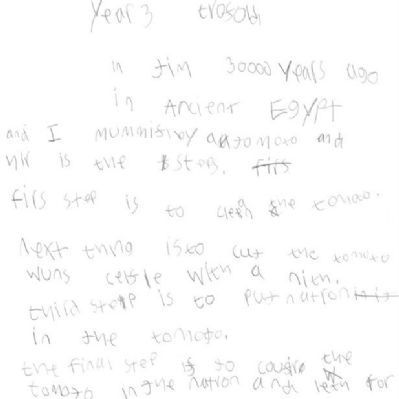 Year 3
n tim 30000 years ago
in Ancient Egypt
and I mummisfiy a tomato and
is the steps.
firs step is to clean the tomato.
Next thing is to cut the tomato
wuns with a nith.
third step is to put natron
in the tomato.
the final step is to the
tomato in the natron and for